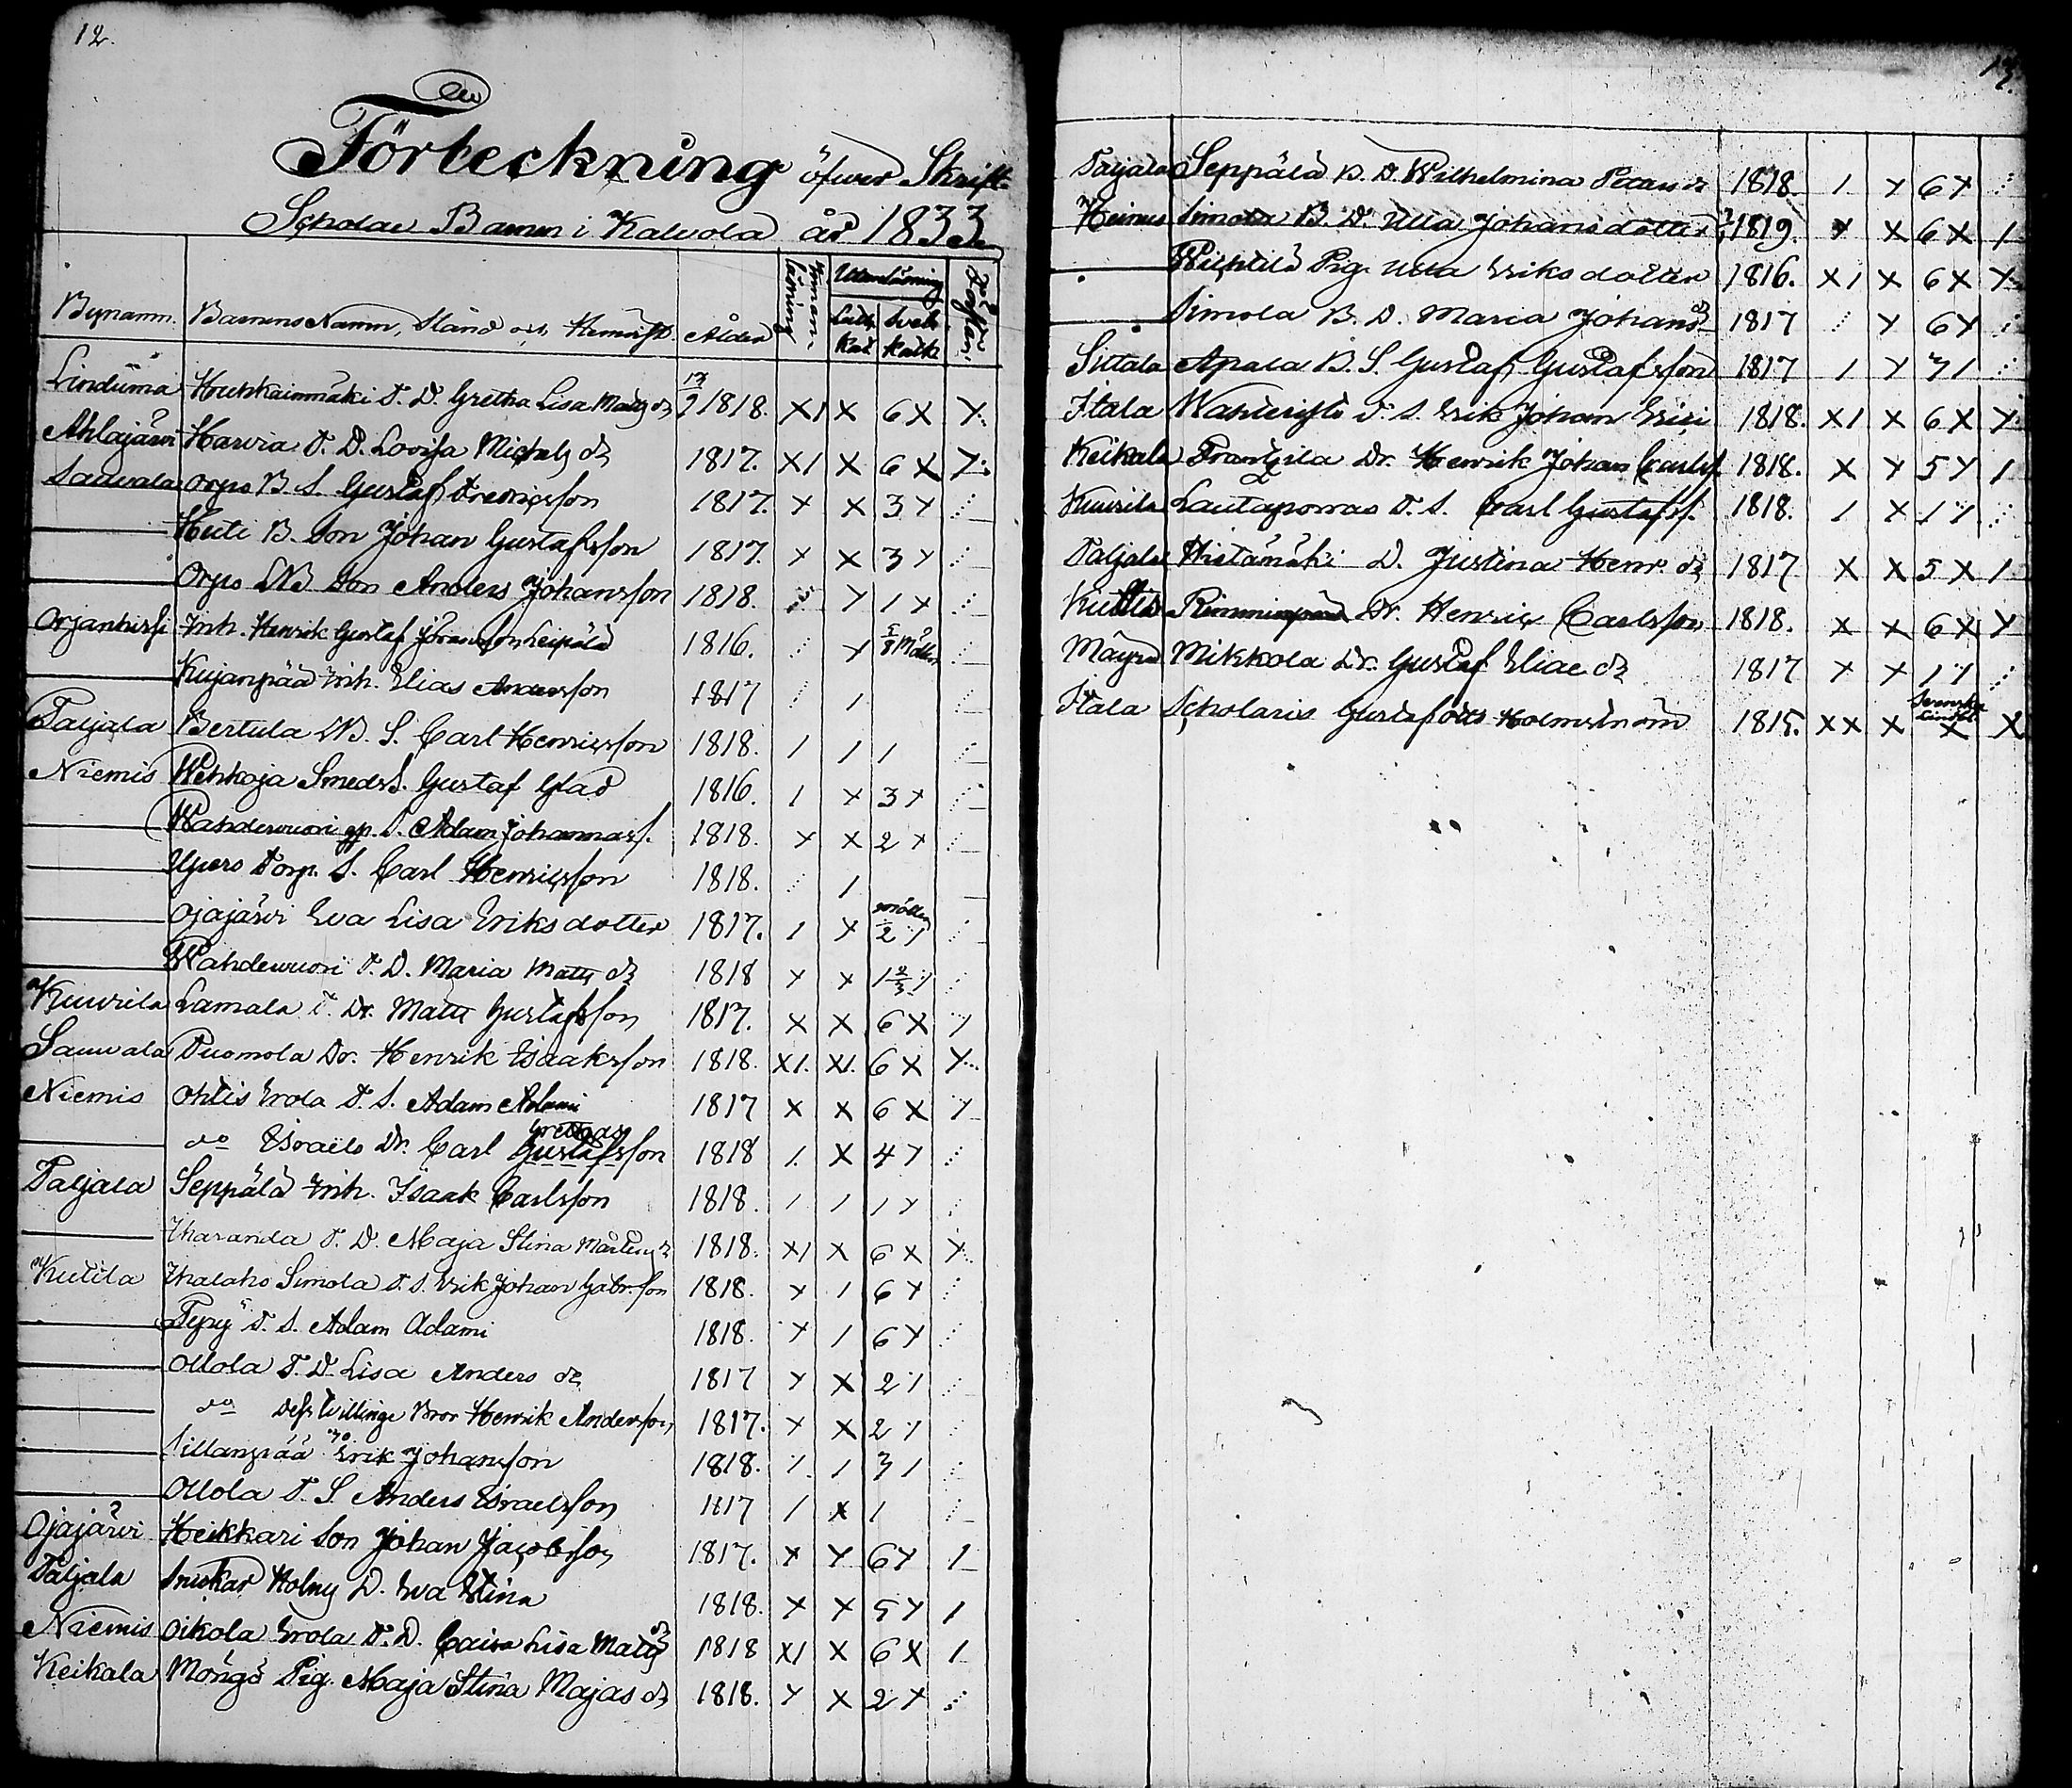 12.
Förteckning öfwer Skrift-
Scholae Barnen i Kalvola år 1833
Innan läsning Utanläsning
Bynamn. Barnens Namn, Stånd och Hemvist. Ålder Luth. Kat Sveb. Katk
Lindüma Huhkainmäki T. D. Gretha Lisa Matts dr 1818. X1 X 6 X
Ahlajärvi Harvia T. D. Lovisa Michels dr 1817. X1 X 6 X
Sauvala Orpo B. S. Gustaf Fredricsson 1817. Y X 3 Y
Huti B. Son Johan Gustafsson 1817. Y X 3 Y
Orpo LNB Son Anders Johansson 1818. Y 1 X
Orjanhirsi Inh. Henrik Gustaf Leipälä 1816. Y
Kujanpää Inh. Elias Andersson 1817 1
Taljala Bertula LNB. S. Carl Henricsson 1818. 1 1 1
Niemis Wehkoja Smeds S. Gustaf Glad 1816. 1 X 3 Y
Wahdervuori T. Adam Johannas s. 1818. Y X 2 Y
Upero Torp. S. Carl Henricsson 1818. 1
Ojajärvi Eva Lisa Eriksdotter 1817. 1 Y 2 1
Wahdervuori T. D. Maria Matts dr 1818 Y X 1 2/3 1
Kuurila Lamala T. Dr. Matts Gustafsson 1817. X X 6 X Y
Sauvala Tuomola Dr. Henrik Isaaksson 1818. X1. X1. 6 X Y
Niemis Ohtis Erola T. S. Adam Adami 1817 X X 6 X Y
Grettas
do Israels Dr. Carl Gustafsson 1818 1. X 4 Y
Taljala Seppälä Inh. Isaak Carlsson 1818. 1 1 1 Y
Iharanda T. D. Maja Stina Mårtens dr 1818. X1 X 6 X Y
Kutila Ihalaho Simola T. S. Erik Johan Gabr. son 1818. Y 1 6 Y
Pyry T. S. Adam Adami 1818. Y 1 6 Y
Ollola T. D. Lisa Anders dr 1817 Y X 2 1
do Dess tvillinge Bror Henrik Andersson 1817. Y X 2 1
Sillanpää Erik Johansson 1818. 1. 1 3 1
Ollola T. S. Anders Israelsson 1817 1 X 1
Ojajärvi Heikkari Son Johan Jacobsson 1817. X Y 6 Y 1
Taljala Snickar Holms D. Eva Stina 1818. X X 5 Y 1
Niemis Oikola Erola T. D. Caisa Lisa Matts dr 1818 X1 X 6 X 1
Keikala Möngö Pig. Maja Stina Majas dr 1818. Y X 2 Y
13.
Taljala Seppälä B. D. Wilhelmina Petters dr 1818. 1 Y 6 Y
Heinus Simola B. D. Ulla Johansdotter 1819. Y X 6 X 1
Pig. Ulla Eriksdotter 1816. X1 X 6 X Y
Simola B. D. Maria Johans dr 1817 Y 6 Y
Sittala Apala B. S. Gustaf Gustafsson 1817 1 Y 3 1
Itala T. S. Erik Johan Erici 1818. X1 X 6 X Y
Keikala Frantsila Dr. Henrik Johan Carls s. 1818. X Y 5 Y 1
Kuurila Lautaporras T. S. Carl Gustafs s. 1818. 1 X 1 Y
Taljala Hietamäki D. Justina Henr. dr 1817 X X 5 X 1
Kutila Dr. Henric Carlsson 1818. X X 6 X Y
Mäyrä Mikkola Dr. Gustaf Eliae dr 1817 Y Y 1 Y
Svenska
Itala Scholaris Gustaf Otto Holmström 1815. XX X X X